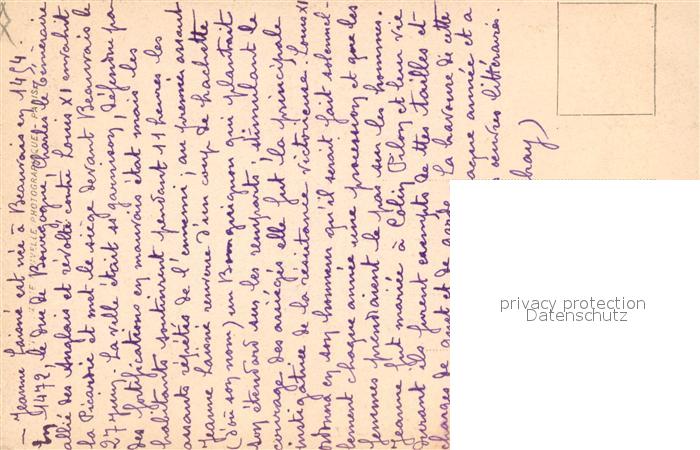 — Jeanne Lainé est née à Beauvais en 1454.
En 1472, le duc de Bourgogne Charles le Téméraire
allié des Anglais et révolté contre Louis XI envahit
la Picardie et met le siège devant Beauvais le
27 juin. La ville était sans garnison, défendue par
des fortifications en mauvais état mais les
habitants soutinrent pendant 11 heures les
assauts répétés de l'ennemi; au premier assaut
Jeanne Lainné renverse d'un coup de hachette
(d'où son nom) un Bourguignon qui plantait
son étendard sur les remparts, stimulant le
courage des assiégés elle fut la principale
instigatrice de la résistance victorieuse. Louis XI
ordonna en son honneur qu'il serait fait solennel-
lement chaque année une procession et que les
femmes prendraient le pas sur les hommes.
Jeanne fut mariée à Colin Pilon et leur vie
durant ils furent exempts de ttes tailles et
charges de guet et de garde. La bravoure de cette
année et a
œuvres littéraires.
hay)
NOUVELLE PHOTOGRAPHIQUE PARIS
privacy protection
Datenschutz